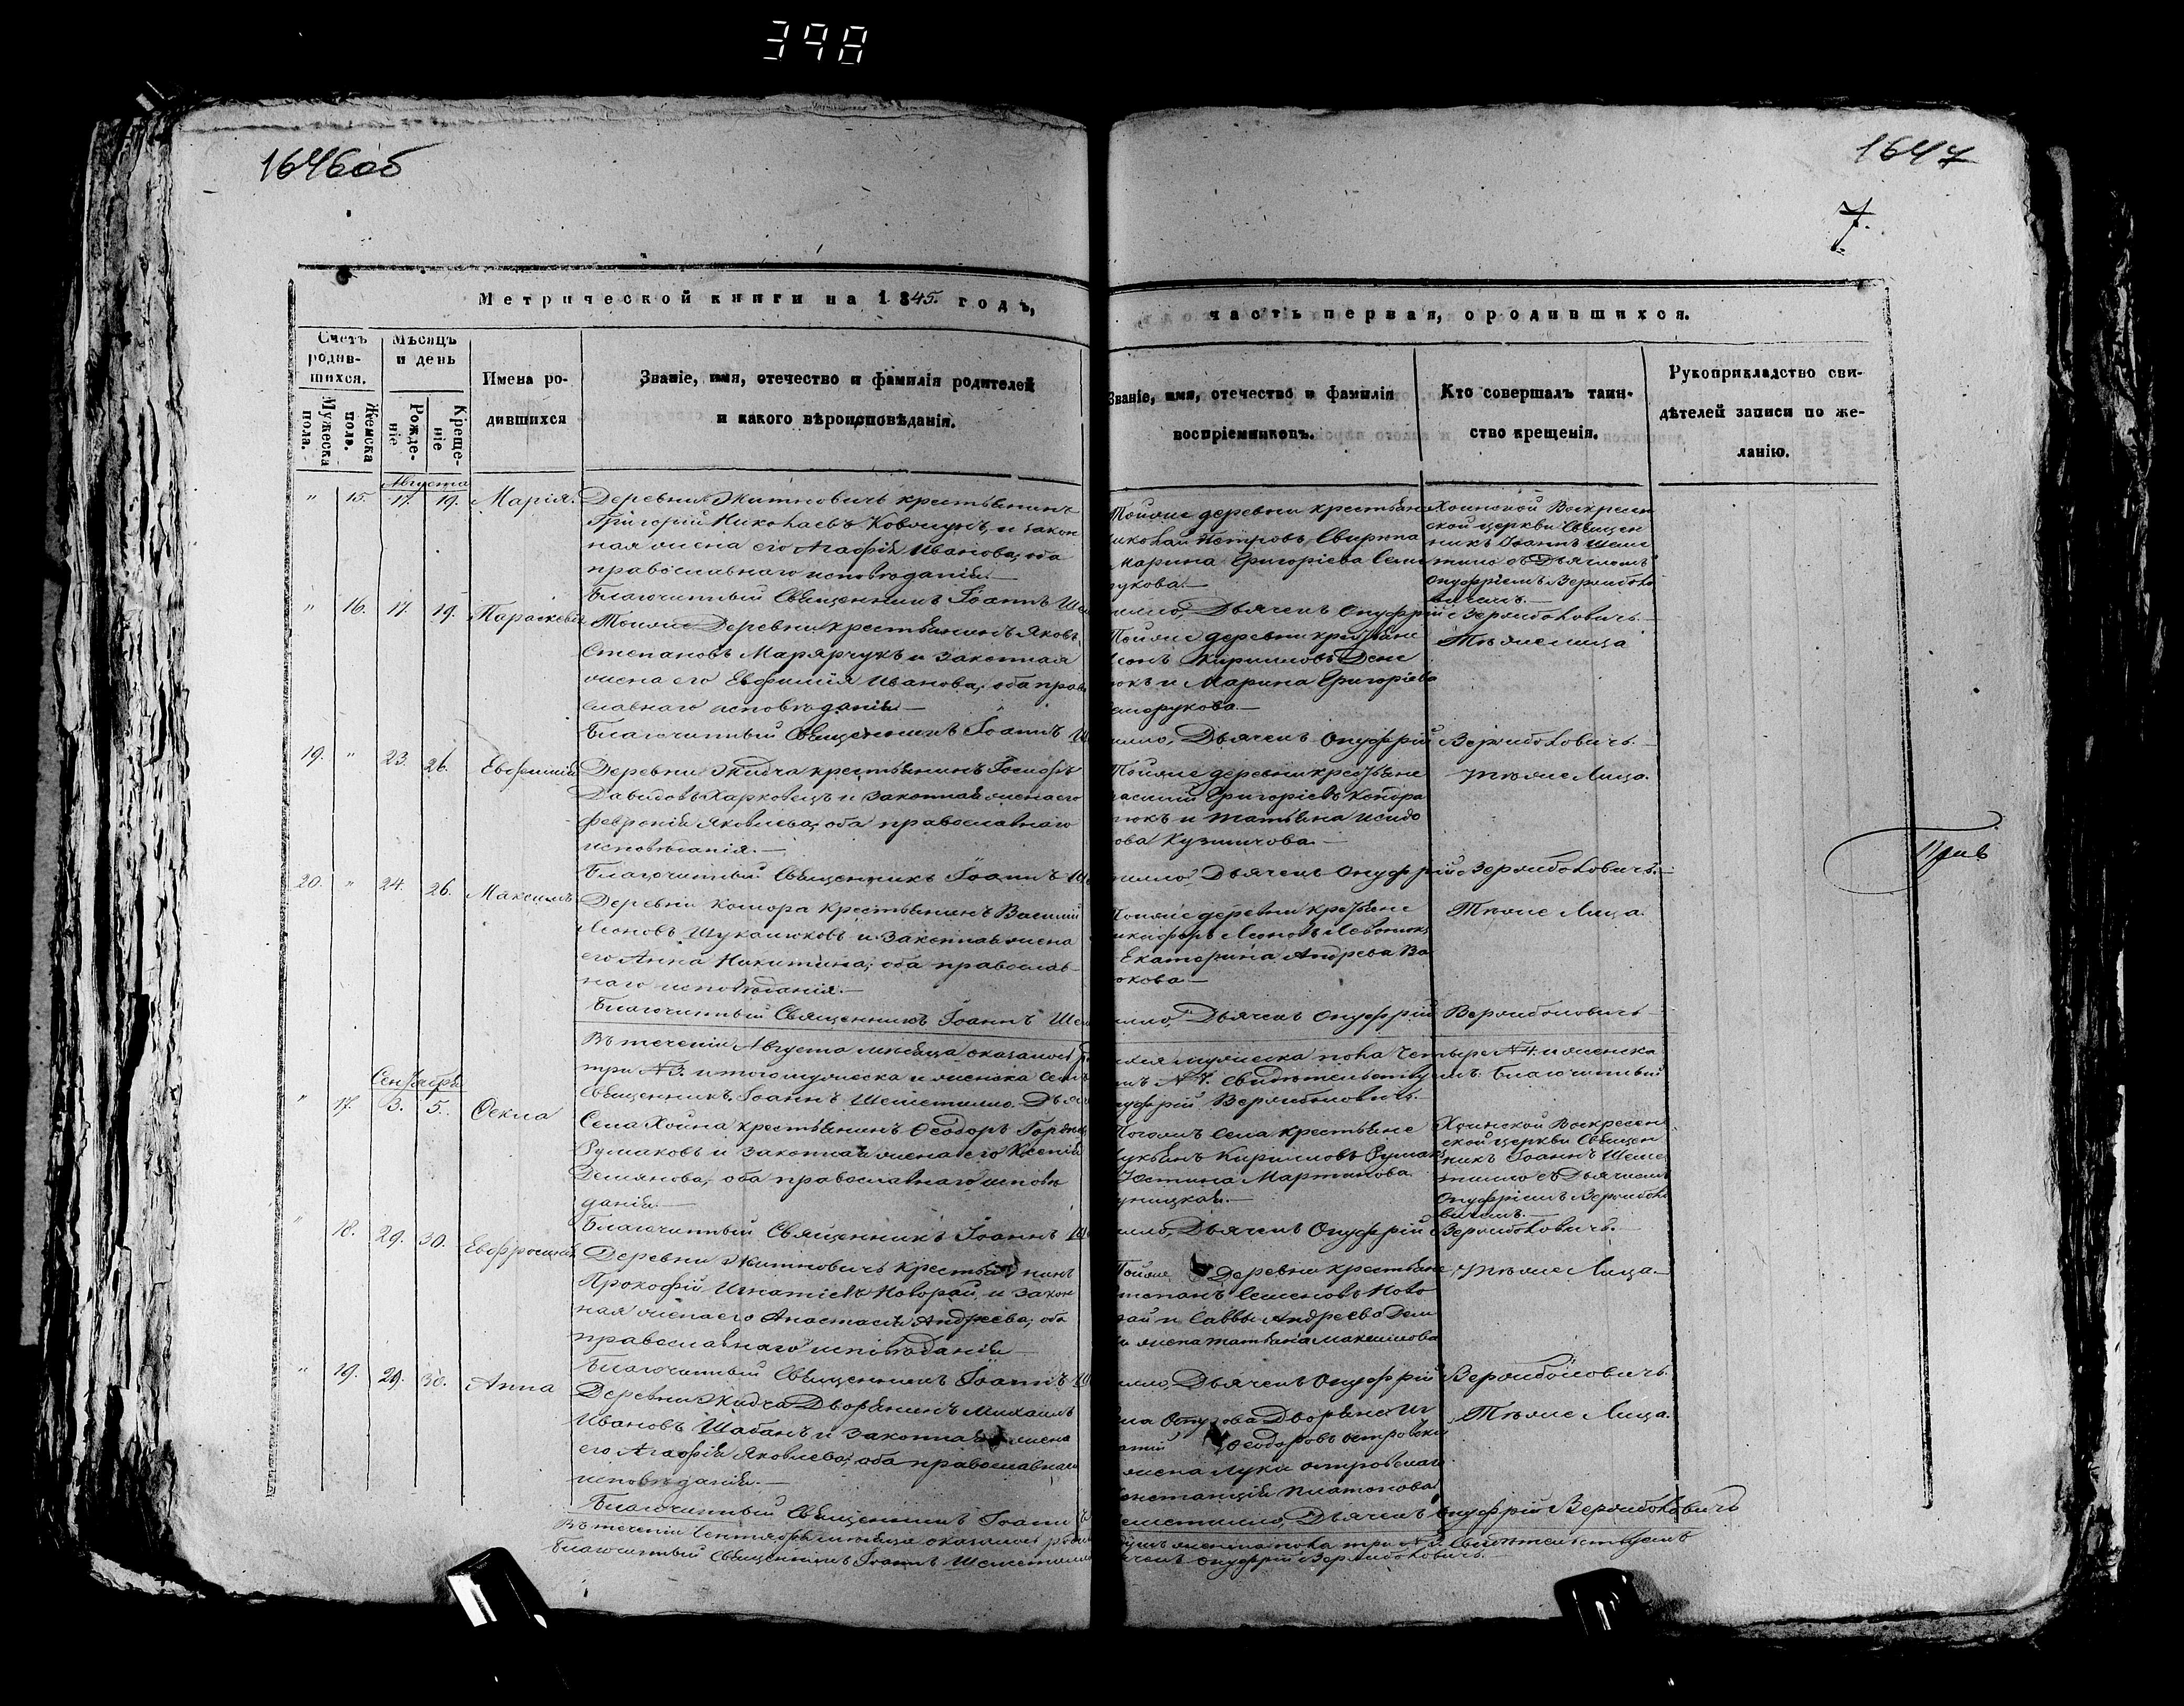 398
1646об
1647
7.
Метрической книги на 1845. годъ,
часть первая, о родившихся.
Счетъ родив-
шихся.
Мужеска пола.
Женска пола.
Мѣсяцъ и день
Рожде-
ніе
Креще-
ніе
Имена ро-
дившихся
Званіе, имя, отечество и фамилія родителей
и какого вѣроисповѣданія.
Званіе, имя, отечество и фамилія
воспріемниковъ.
Кто совершалъ таин-
ство крещенія.
Рукоприкладство сви-
дѣтелей записи по же-
ланію.
Августа
" 15. 17. 19. Марія.
Деревни Житновичъ крестьянинъ
Григорій Николаевъ и закон
ная жена его Агафія Иванова, оба
православнаго исповѣданія.
Тойже деревни крестьяне
Николай Петровъ Свирепа
Марина Григоріева Семе
рукова.
Хоинской Воскресен
ской церкви Священ
никъ Іоаннъ Шеме
тилло съ Дьячкомъ
Онуфріемъ Вержиболо
вичемъ.
Благочинный Священникъ Іоаннъ Шеметилло, Дьячекъ Онуфрій Вержиболовичъ.
" 16. 17. 19. Параскевія
Тойже Деревни крестьянинъ Яковъ
Степановъ Марярчукъ и законная
жена его Евфимія Иванова, оба право
славнаго исповѣданія.
Тойже деревни крестьяне
Кирилловъ Дене
юкъ и Марина Григоріева
Семерукова.
Тѣже лица
Благочинный Священникъ Іоаннъ Шеметилло, Дьячекъ Онуфрій Вержиболовичъ.
19. " 23. 26. Евфимій
Деревни Жидча крестьянинъ Іосифъ
Давидовъ Харковецъ и законная жена его
Февронія Яковлева, оба православнаго
исповѣданія.
Тойже деревни крестьяне
Василій Григоріевъ Кондра
тюкъ и Татьяна Исидо
рова Кузмичова.
Тѣже Лица.
Благочинный Священникъ Іоаннъ Шеметилло, Дьячекъ Онуфрій Вержиболовичъ.
20. " 24. 26. Максимъ
Деревни Комора крестьянинъ Василій
Леоновъ Шукалюковъ и законная жена
его Анна Никитина, оба православ-
наго исповѣданія.
Тойже деревни крестьяне
Никифоръ Леоновъ Левонюкъ
Екатерина Андреева Ва
юкова.
Тѣже Лица.
Благочинный Священникъ Іоаннъ Шеметилло, Дьячекъ Онуфрій Вержиболовичъ
Въ теченіи Августа мѣсяца оказалось родившихся мужеска пола четыре №4. и женска
три №3. итого мужеска и женска семь №7. Свидѣтельствуемъ: Благочинный
Священникъ Іоаннъ Шеметилло. Дьячекъ Онуфрій Вержиболовичъ.
Сентября
" 17. 3. 5. Ѳекла
Села Хойна крестьянинъ Ѳеодоръ Гордѣевъ
Румаковъ и законная жена его Ксенія
Демянова, оба православнаго исповѣ
данія.
Тогожъ села крестьяне
Лукьянъ Кирилловъ Румакъ
Устина Мартинова
Хоинской Воскресен
ской церкви Священ
никъ Іоаннъ Шеме
тилло съ Дьячкомъ
Онуфріемъ Вержиболо
вичемъ.
Благочинный Священникъ Іоаннъ Шеметилло, Дьячекъ Онуфрій Вержиболовичъ.
" 18. 29. 30. Евфросинія
Деревни Житновичъ крестьянинъ
Прокофій Игнатіевъ Новорай, и закон
ная жена его Анастасія Андреева, оба
православнаго исповѣданія
Тойже деревни крестьяне
Степанъ Семеновъ Ново
рай и Саввы Андреева Дем
жена Татьяна Максимова
Тѣже Лица.
Благочинный Священникъ Іоаннъ Шеметилло, Дьячекъ Онуфрій Вержиболовичъ.
" 19. 29. 30. Анна
Деревни Жидча Дворянинъ Михаилъ
Ивановъ Шабанъ и законная жена
его Агафія Яковлева, оба православнаго
исповѣданія.
Дворяне Иг
натій Ѳеодоровъ Островскій
жена Луки Островскаго
Констанція Платонова
Тѣже Лица.
Благочинный Священникъ Іоаннъ Шеметилло, Дьячекъ Онуфрій Вержиболовичъ
Въ теченіи Сентября мѣсяца оказалось родившихся женска пола три №3. Свидѣтельствуемъ
Благочинный Священникъ Іоаннъ Шеметилло Дьячекъ Онуфрій Вержиболовичъ.